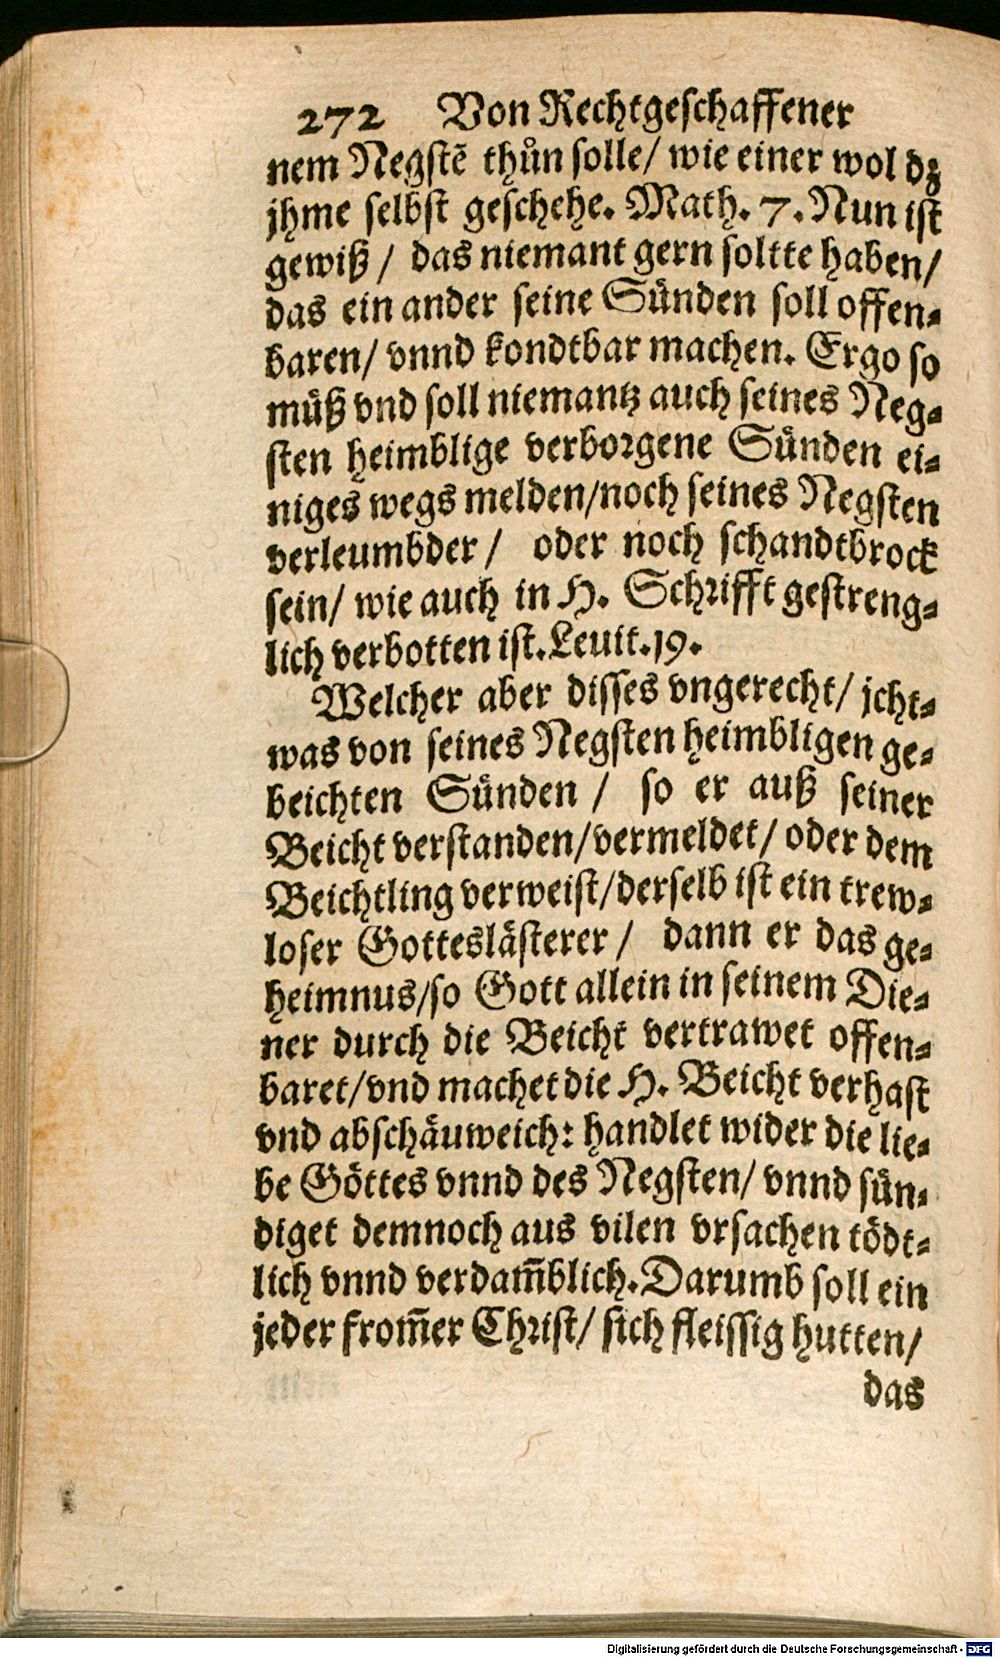 272 Von Rechtgeschaffener
nem Negstē thůn solle/ wie einer wol dz
jhme selbst geschehe. Math. 7. Nun ist
gewiß/ das niemant gern soltte haben/
das ein ander seine Sünden soll offen-
baren/ vnnd kondtbar machen. Ergo so
müß vnd soll niemantz auch seines Neg-
sten heimblige verborgene Sünden ei-
niges wegs melden/noch seines Negsten
verleumbder/ oder noch schandtbrock
sein/ wie auch in H. Schrifft gestreng-
lich verbotten ist. Leuit. 19.
Welcher aber disses vngerecht/ jcht-
was von seines Negsten heimbligen ge-
beichten Sünden/ so er auß seiner
Beicht verstanden/vermeldet/ oder dem
Beichtling verweist/derselb ist ein trew-
loser Gotteslästerer/ dann er das ge-
heimnus/so Gott allein in seinem Die-
ner durch die Beicht vertrawet offen-
baret/vnd machet die H. Beicht verhast
vnd abschäuweich: handlet wider die lie-
be Göttes vnnd des Negsten/ vnnd sün-
diget demnoch aus vilen vrsachen tödt-
lich vnnd verdam̄blich. Darumb soll ein
jeder from̄er Christ/ sich fleissig hutten/
das
Digitalisierung gefördert durch die Deutsche Forschungsgemeinschaft - DFG